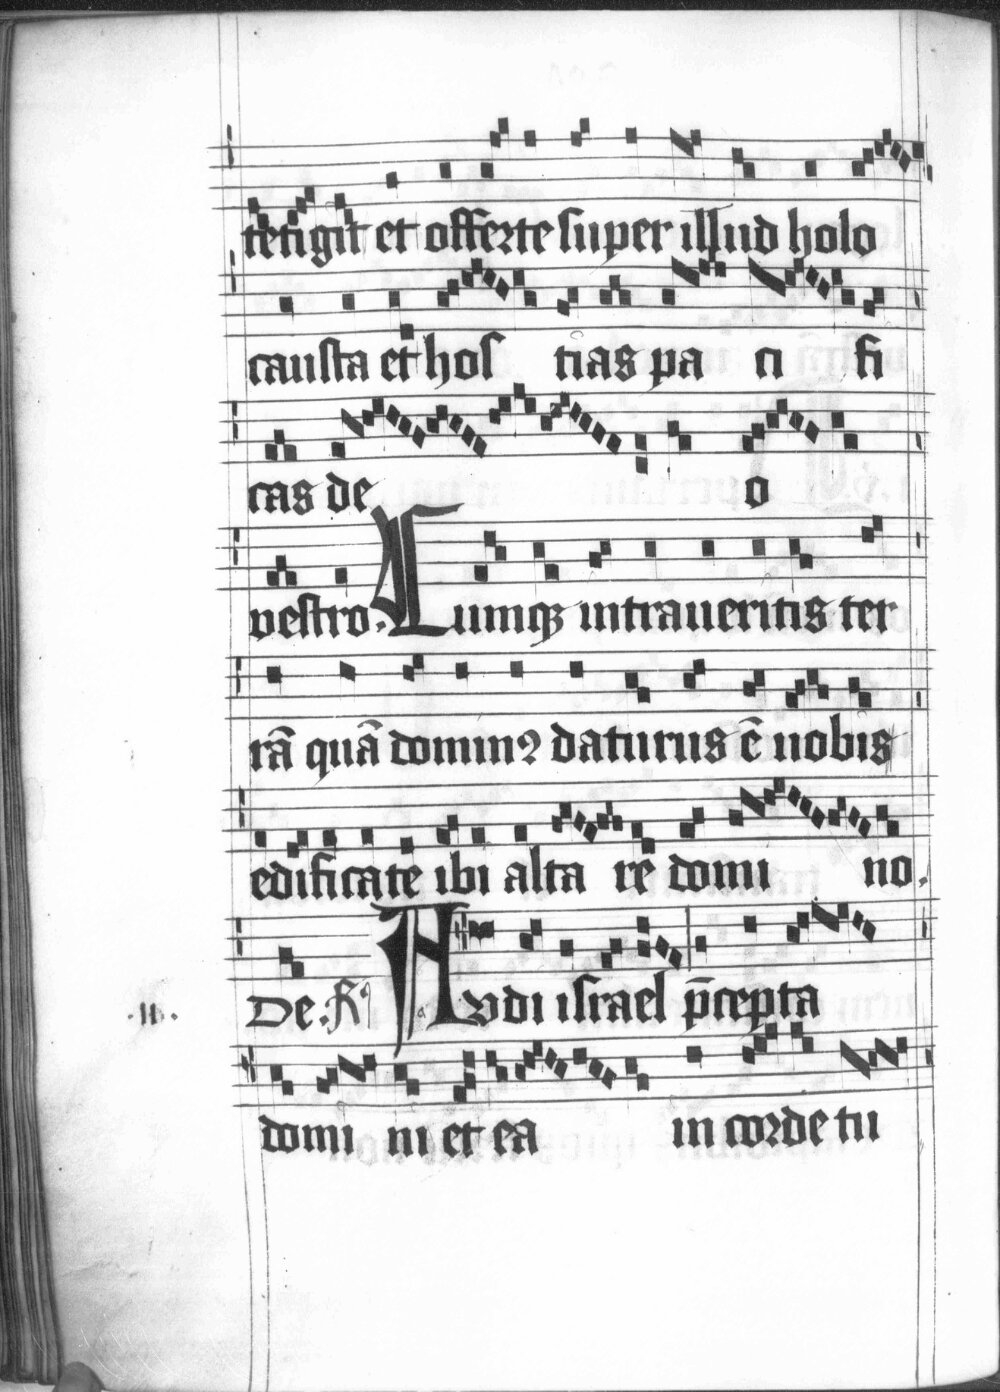 tetigit et offerte super illud holo
causta et hos tias pa ci fi
cas de o
vestro. Cumq3 intraueritis ter
rā quā domin9 daturus ē uobis
edificate ibi alta re domi no.
.II. De. R Audi israel p̄cepta
domi ni et ea in corde tu